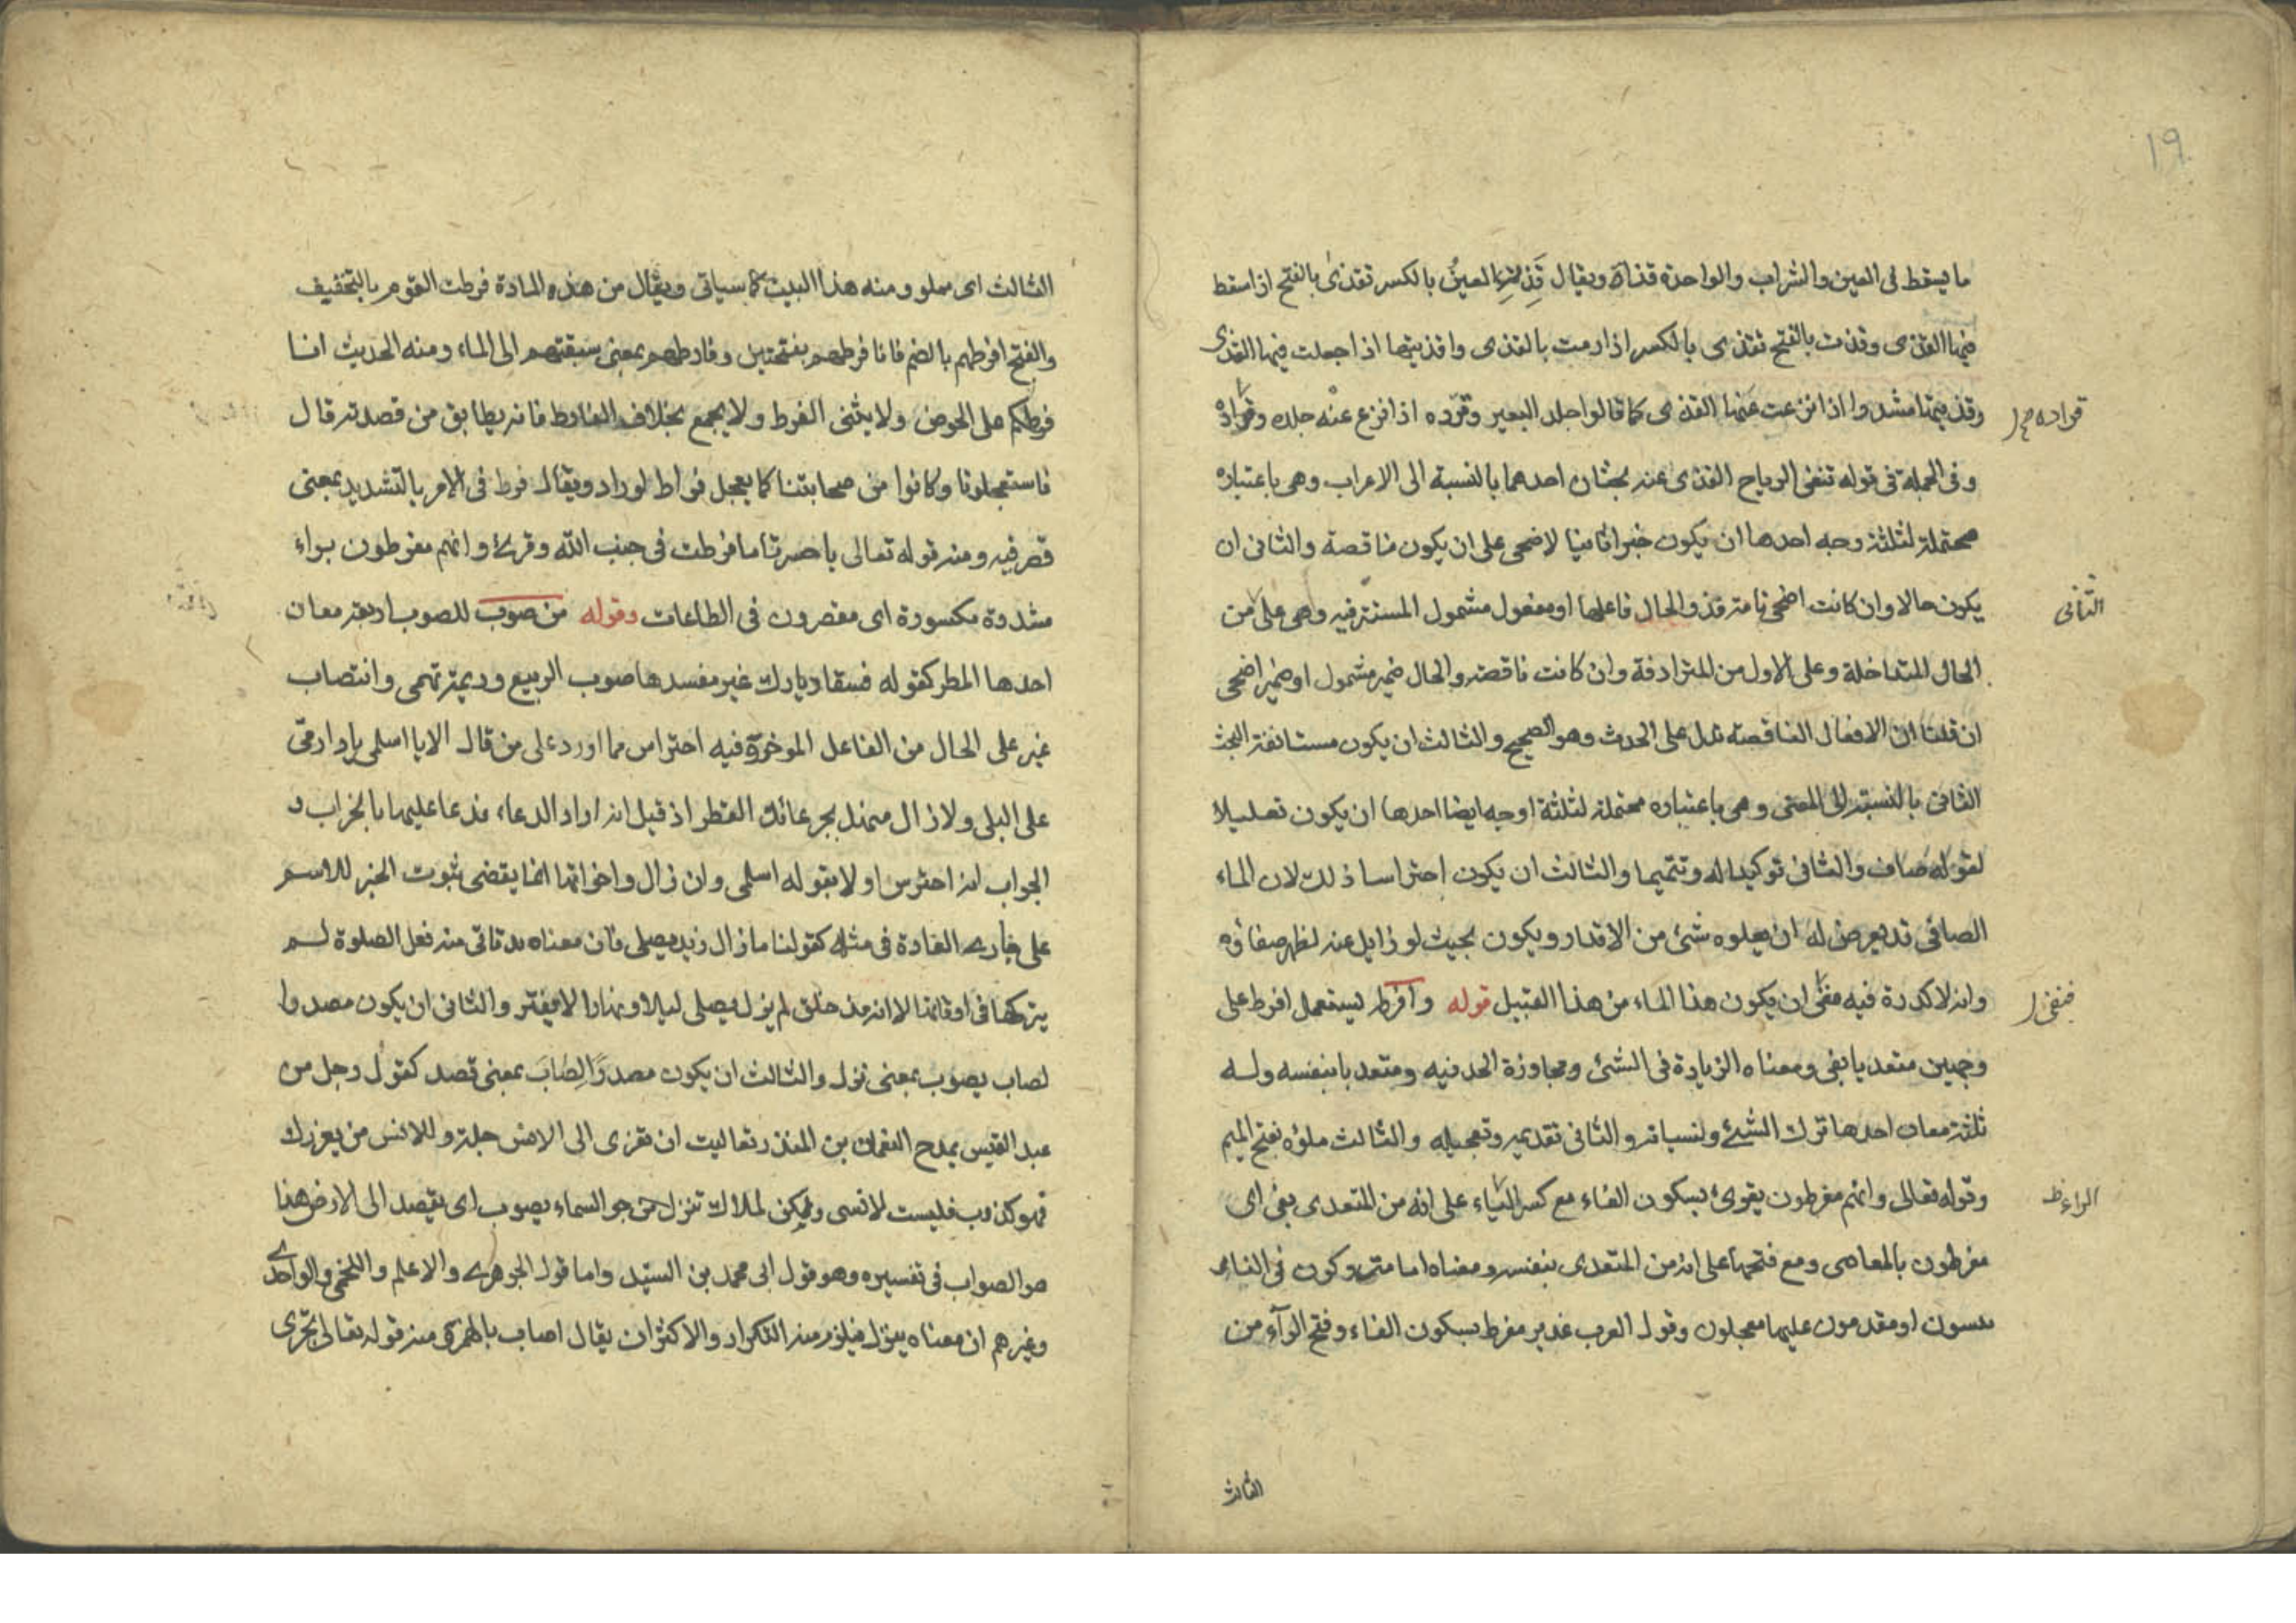 ١٩
ما يسقط فى العين والشراب والواحدة قذاة ويقال قذيت العين بالكسر تقذى بالفتح اذا سقط
فيها القذى وقذت بالفتح تقذى بالكسر اذا رمت بالقذى واقذيتها اذا جعلت فيها القذى
وقذيتها مشددا اذا نزعت عنها القذى كما قالوا جلد البعير وقرده اذا نزع عنه جلده وقراده
قراده صح
وفى الجملة فى قوله تنفى الرياح القذى عنه بحثان احدهما بالنسبة الى الاعراب وهى باعتباره
محتملة لثلثة وجه احدها ان يكون خبرا ثانيا لاضحى على ان يكون ناقصة والثانى ان
يكون حالا وان كانت اضحى تامة قذو الحال فاعلها او مفعول مشمول المستتر فيه وهى على من
الثانى
الحال المتداخلة وعلى الاول من المترادفة وان كانت ناقصة والحال ضمير مشمول او ضمير اضحى
ان قلنا ان الافعال الناقصة تدل على الحدث وهو الصحيح والثالث ان يكون مستانفة البحث
الثانى بالنسبة الى المعنى وهى باعتباره محتملة لثلثة اوجه ايضا احدها ان يكون تعليلا
لقوله صاف والثانى توكيدا له وتتميما والثالث ان يكون احتراسا ذلك لان الماء
الصافى قد يعرض له ان يعلوه شئ من الاقذار ويكون بحيث لو زايل عنه لظهر صفاؤه
وانه لا كدرة فيه ان يكون هذا الماء من هذا القبيل قوله وافرط يستعمل افرط على
فنفى
وجهين متعد يا بفى ومعناه الزيادة فى الشئ ومجاوزة الحد فيه ومتعد يا بنفسه وله
ثلثة معان احدها ترك الشئ ونسيانه والثانى تقديمه وتعجيله والثالث ملؤه بفتح الميم
وقوله تعالى وانهم مفرطون يقرئ بسكون الفاء مع كسر الياء على انه من المتعدى بفى اى
الراء ظ
مفرطون بالمعاصى ومع فتحها على انه من المتعدى بنفسه ومعناه اما متروكون فى النار
منسيون او مقدمون عليها معجلون وقول العرب غدير مفرط بسكون الفاء وفتح الراء من
الثالث
الثالث اى مملو ومنه هذا البيت كما سياتى ويقال من هذه المادة فرطت القوم بالتخفيف
والفتح افرطهم بالضم فانا فرطهم بفتحتين وفارطهم بمعنى سبقتهم الى الماء ومنه الحديث انا
فرطكم على الحوض ولا يثنى الفرط ولا يجمع بخلاف الفارط فانه يطابق من قصدته قال
فاستعجلونا وكانوا من صحابتنا كما يعجل فراط لوراد ويقال فرط فى الامر بالتشديد بمعنى
قصر فيه ومنه قوله تعالى يا حسرتا ما فرطت فى جنب الله وقرئ وانهم مفرطون براء
مشددة مكسورة اى مقصرون فى الطاعات وقوله من صوب للصوب اربعة معان
احدها المطر كقوله فسقا ديارك غير مفسدها صوب الربيع وديمة تهمى وانتصاب
غير على الحال من الفاعل الموخر وفيه احتراس مما اورد على من قال الا يا اسلمى يا دار مى
على البلى ولا زال منهلا بجرعائك القطر اذ قيل انه اراد الدعاء فدعا عليها بالخراب و
الجواب انه احترس اولا بقوله اسلمى وان زال واخواتها انما يقتضى ثبوت الخبر للاسم
على جارى العادة فى مثله كقولنا ما زال زيد يصلى فان معناه مذ تاتى منه فعل الصلوة لم
يتركها فى اوقاتها لا انه مذ خلق لم يزل يصلى ليلا ونهارا لا يفتر والثانى ان يكون مصدرا
لصاب يصوب بمعنى نزل والثالث ان يكون مصدرا لصاب بمعنى قصد كقول رجل من
عبد القيس يمدح النعمان بن المنذر تعاليت ان تعزى الى الانس جلة وللانس من يعزرك
فهو كذوب فليست لانسى ولكن لملاك تنزل من جو السماء يصوب اى يقصد الى الارض هذا
هو الصواب فى تفسيره وهو قول ابى محمد بن السيد واما قول الجوهرى والاعلم واللخمى والواحدى
وغيرهم ان معناه ينزل فيلزم منه التكرار والاكثر ان يقال اصاب بالهمزة ومنه قوله تعالى تجرى